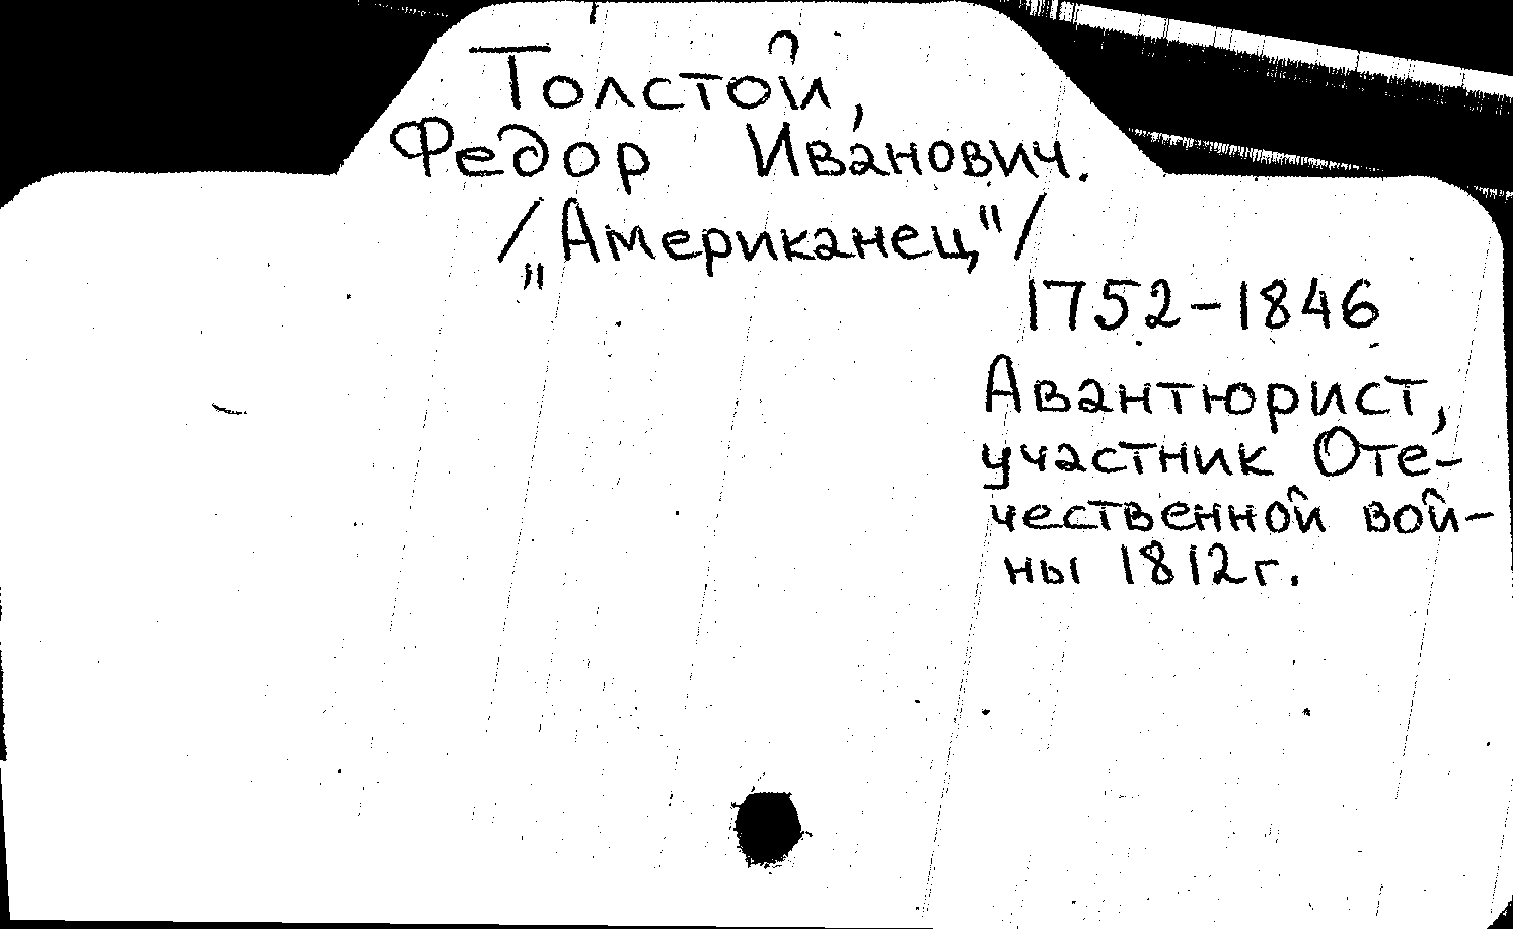 Толстой,
Федор Иванович.
/„Американец"/
1752-1846
Авантюрист,
участник Оте-
чественной вой-
ны 1812г.